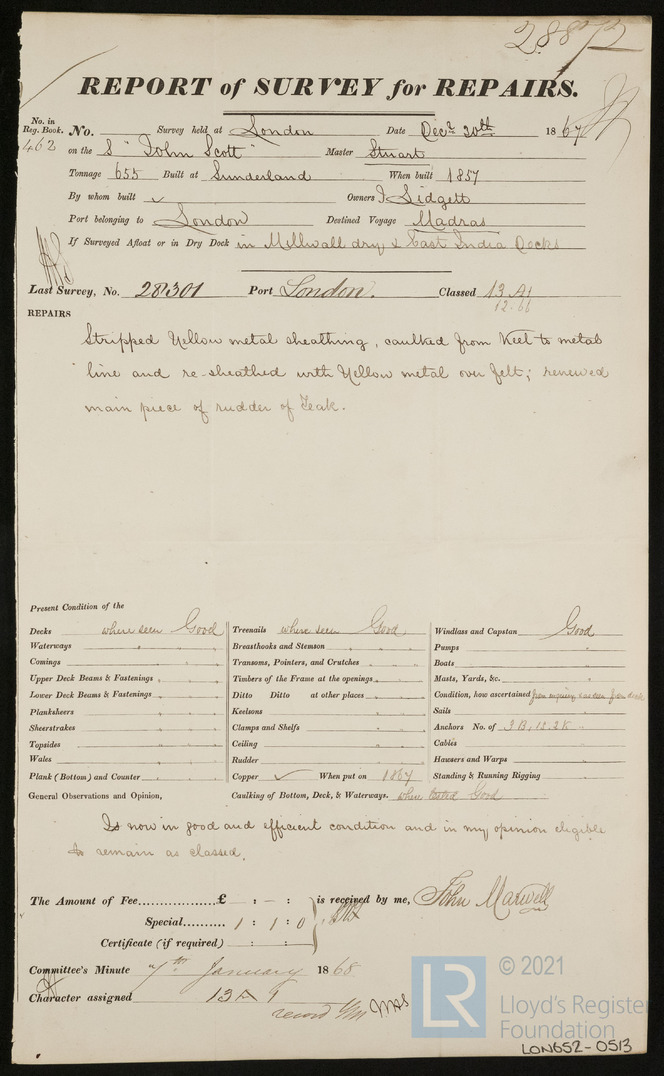 28872
REPORT of SURVEY for REPAIRS.
No. in
Reg. Book. No. Survey held at London Date Decr 20th 1867
462 on the S "John Scott" Master Stuart
Tonnage 655 Built at Sunderland When built 1857
By whom built ✓ Owners J Lidgett
Port belonging to London Destined Voyage Madras
If Surveyed Afloat or in Dry Dock in Millwall dry & East India Docks
Last Survey, No. 28301 Port London. Classed 13 A1
12.66
REPAIRS
Stripped Yellow metal sheathing, caulked from Keel to metal
line and re-sheathed with Yellow metal over felt; renewed
main piece of rudder of Teak.
Present Condition of the
Decks where seen Good Treenails where seen Good Windlass and Capstan Good
Waterways " " Breasthooks and Stemson " " Pumps "
Comings " " Transoms, Pointers, and Crutches " " Boats "
Upper Deck Beams & Fastenings " " Timbers of the Frame at the openings " " Masts, Yards, &c. "
Lower Deck Beams & Fastenings " " Ditto Ditto at other places " " Condition, how ascertained from deck
Planksheers " " Keelsons " " Sails "
Sheerstrakes " " Clamps and Shelfs " " Anchors No. of 3 B, 1 S. 2 K "
Topsides " " Ceiling " " Cables "
Wales " " Rudder " " Hawsers and Warps "
Plank (Bottom) and Counter " " Copper ✓ When put on 1867 Standing & Running Rigging "
General Observations and Opinion, Caulking of Bottom, Deck, & Waterways. when tested Good
Is now in good and efficient condition and in my opinion eligible
to remain as classed.
The Amount of Fee..................£ : - : is received by me, John Marwell
Special.......... 1 : 1 : 0
Certificate (if required) : :
Committee's Minute 7th January 1868
Character assigned 13 A 1
record
© 2021
LR Lloyd's Register
Foundation
LON652-0513